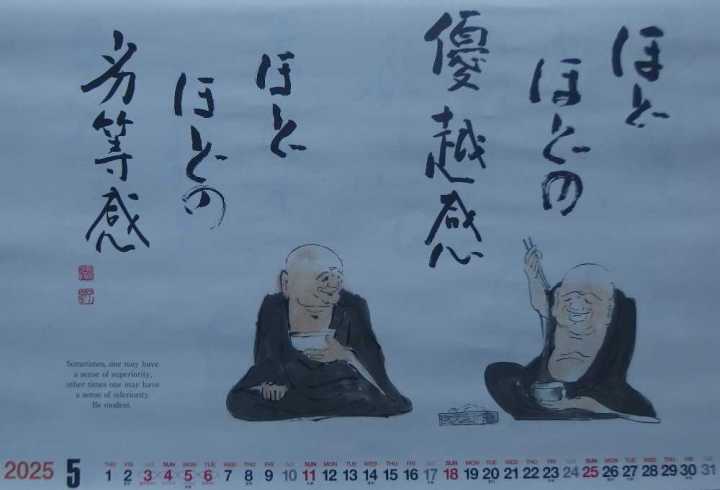 ほど
ほどの
優越感
ほど
ほどの
劣等感
Sometimes, one may have
a sense of superiority,
other times one may have
a sense of inferiority.
Be modest.
2025 5
THU FRI SAT SUN MON TUE WED THU FRI SAT SUN MON TUE WED THU FRI SAT SUN MON TUE WED THU FRI SAT SUN MON TUE WED THU FRI SAT
1 2 3 4 5 6 7 8 9 10 11 12 13 14 15 16 17 18 19 20 21 22 23 24 25 26 27 28 29 30 31